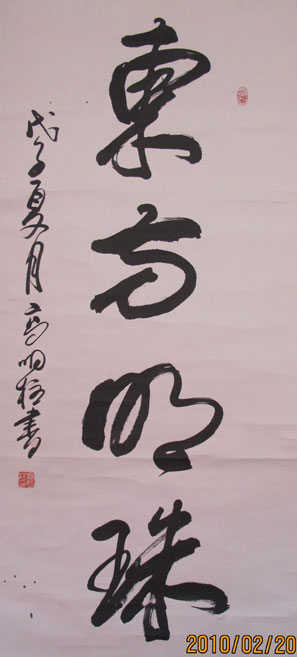 東方明珠
戊子夏月高明柱書
2010/02/20